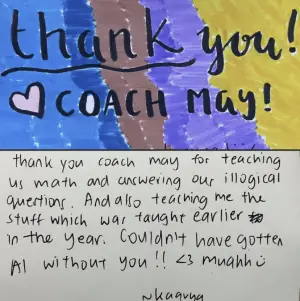 thank you!
COACH MAY!
thank you coach may for teaching
us math and answering our illogical
questions. And also teaching me the
stuff which was taught earlier
in the year. Couldn't have gotten
A1 without you!! <3 muahh